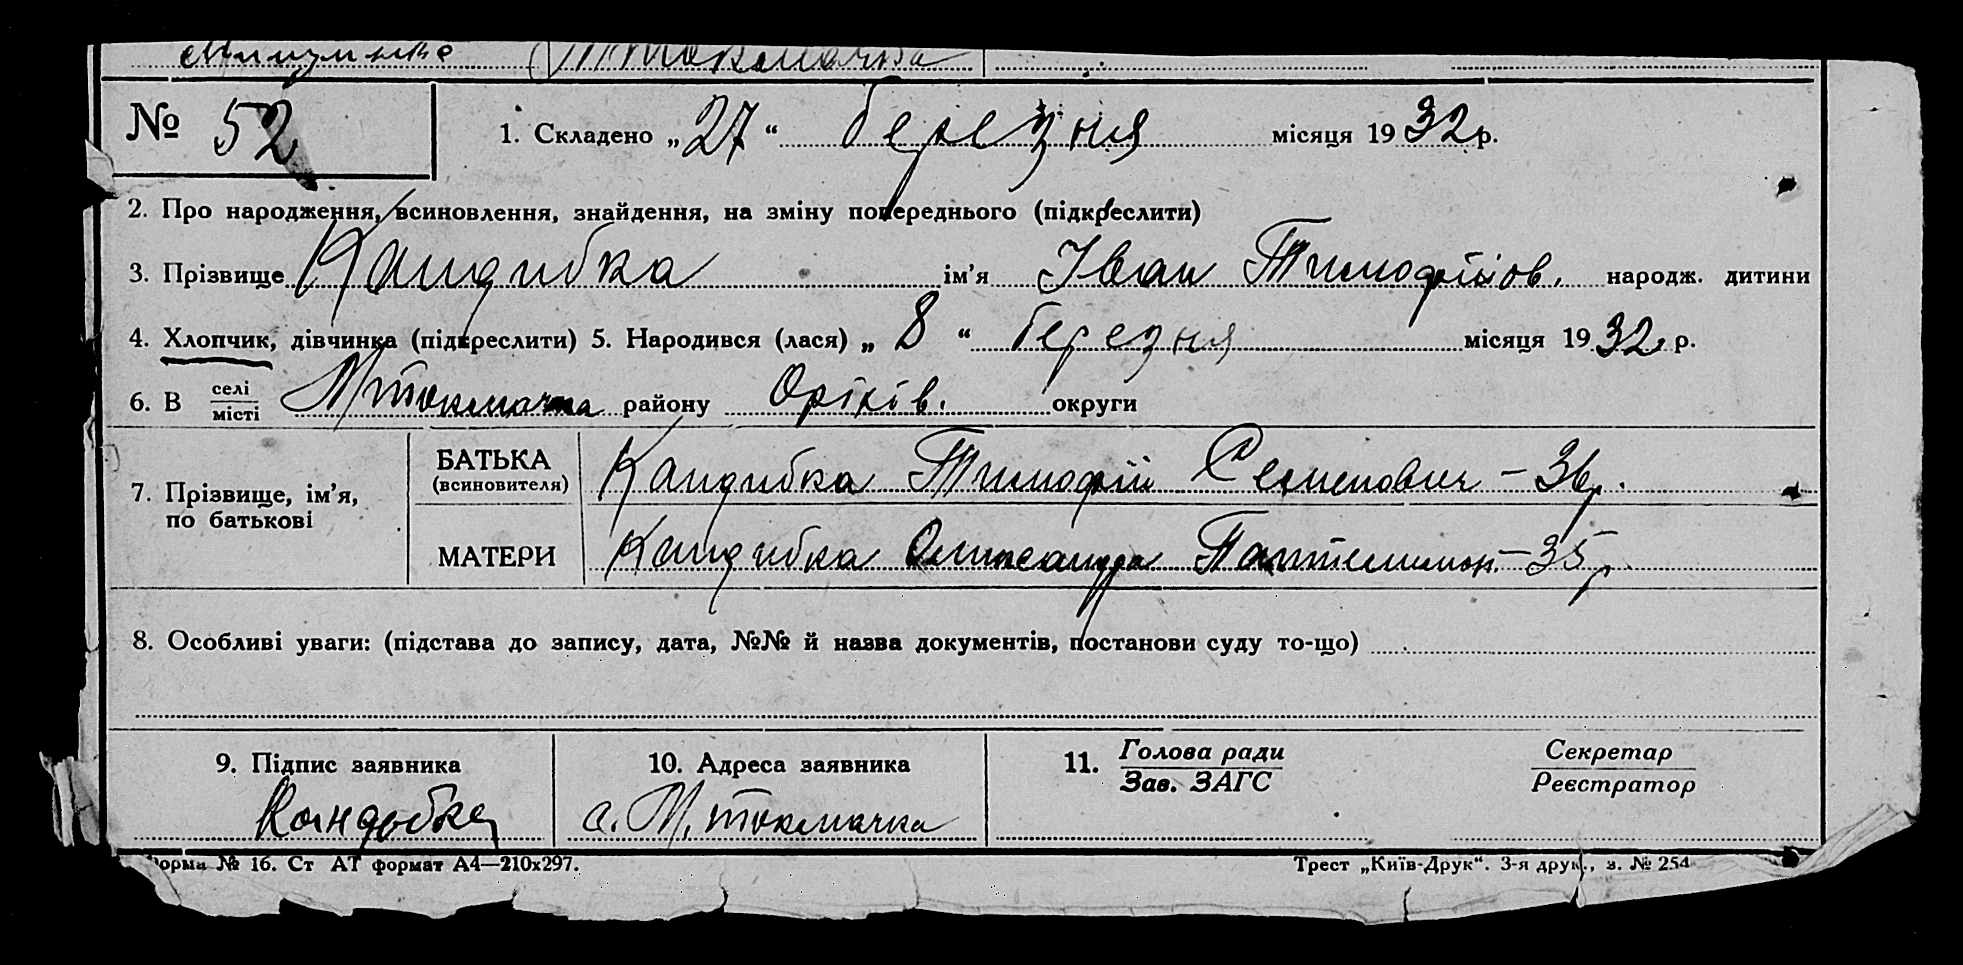 М токмачка
№ 52 1. Складено „27“ березня місяця 1932 р.
2. Про народження, всиновлення, знайдення, на зміну попереднього (підкреслити)
3. Прізвище Кандибка ім'я Іван Тимофійов. народж. дитини
4. Хлопчик, дівчинка (підкреслити) 5. Народився (лася) „ 8 “ березня місяця 1932 р.
6. В селі/місті М токмачка району Оріхів. округи
7. Прізвище, ім'я, по батькові
БАТЬКА (всиновителя) Кандибка Тимофій Семенович – 36 р.
МАТЕРИ Кандибка Олександра Пантелимон. – 35 р.
8. Особливі уваги: (підстава до запису, дата, №№ й назва документів, постанови суду то-що)
9. Підпис заявника 10. Адреса заявника 11. Голова ради/Зав. ЗАГС Секретар/Реєстратор
Кандибка с. М. токмачка
Форма № 16. Ст АТ формат А4—210х297. Трест „Київ-Друк“. 3-я друк., з. № 254